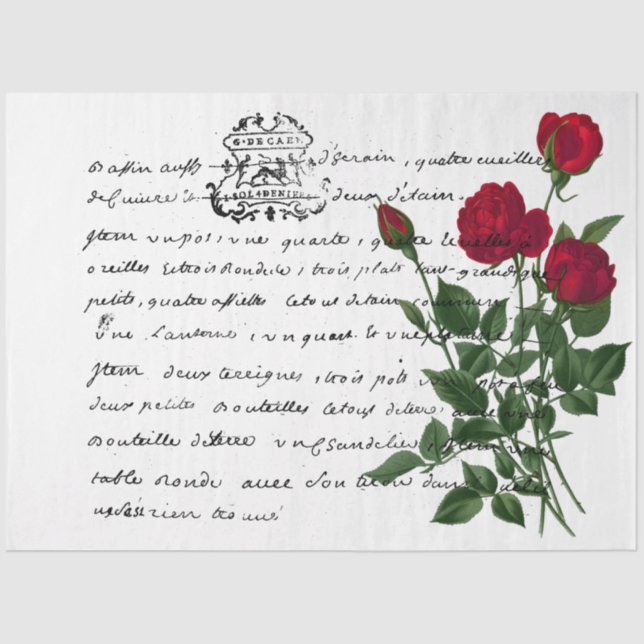 G · DE CAEN
SOL 4 DENIERS
Bassin aussi d'Serain, quatre cueilleres
de Cuivre deux d'étain.
Jtem un pot, une quarte, quatre Ecuelles à
oreilles Et trois Ronde, trois plats tant grands que
petits, quatre assiettes Le tout d'étain commun
une Lanterne, un quart. Et une
Jtem deux tereignes, trois pots un
deux petites Bouteilles Le tout de terre avec une
Bouteille de terre un Chandelier, Jtem une
table Ronde avec Son tiroir dans
ne S'est rien trouvé